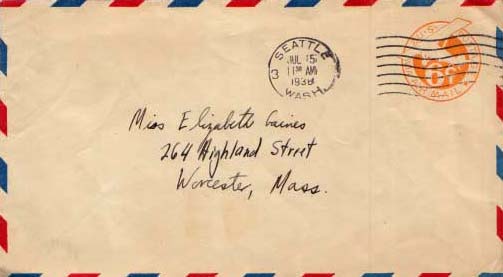 SEATTLE
3
JUL 15
11 30 AM
1938
WASH.
U.S.
06
AIR MAIL
Miss Elizabeth Gaines
264 Highland Street
Worcester, Mass.